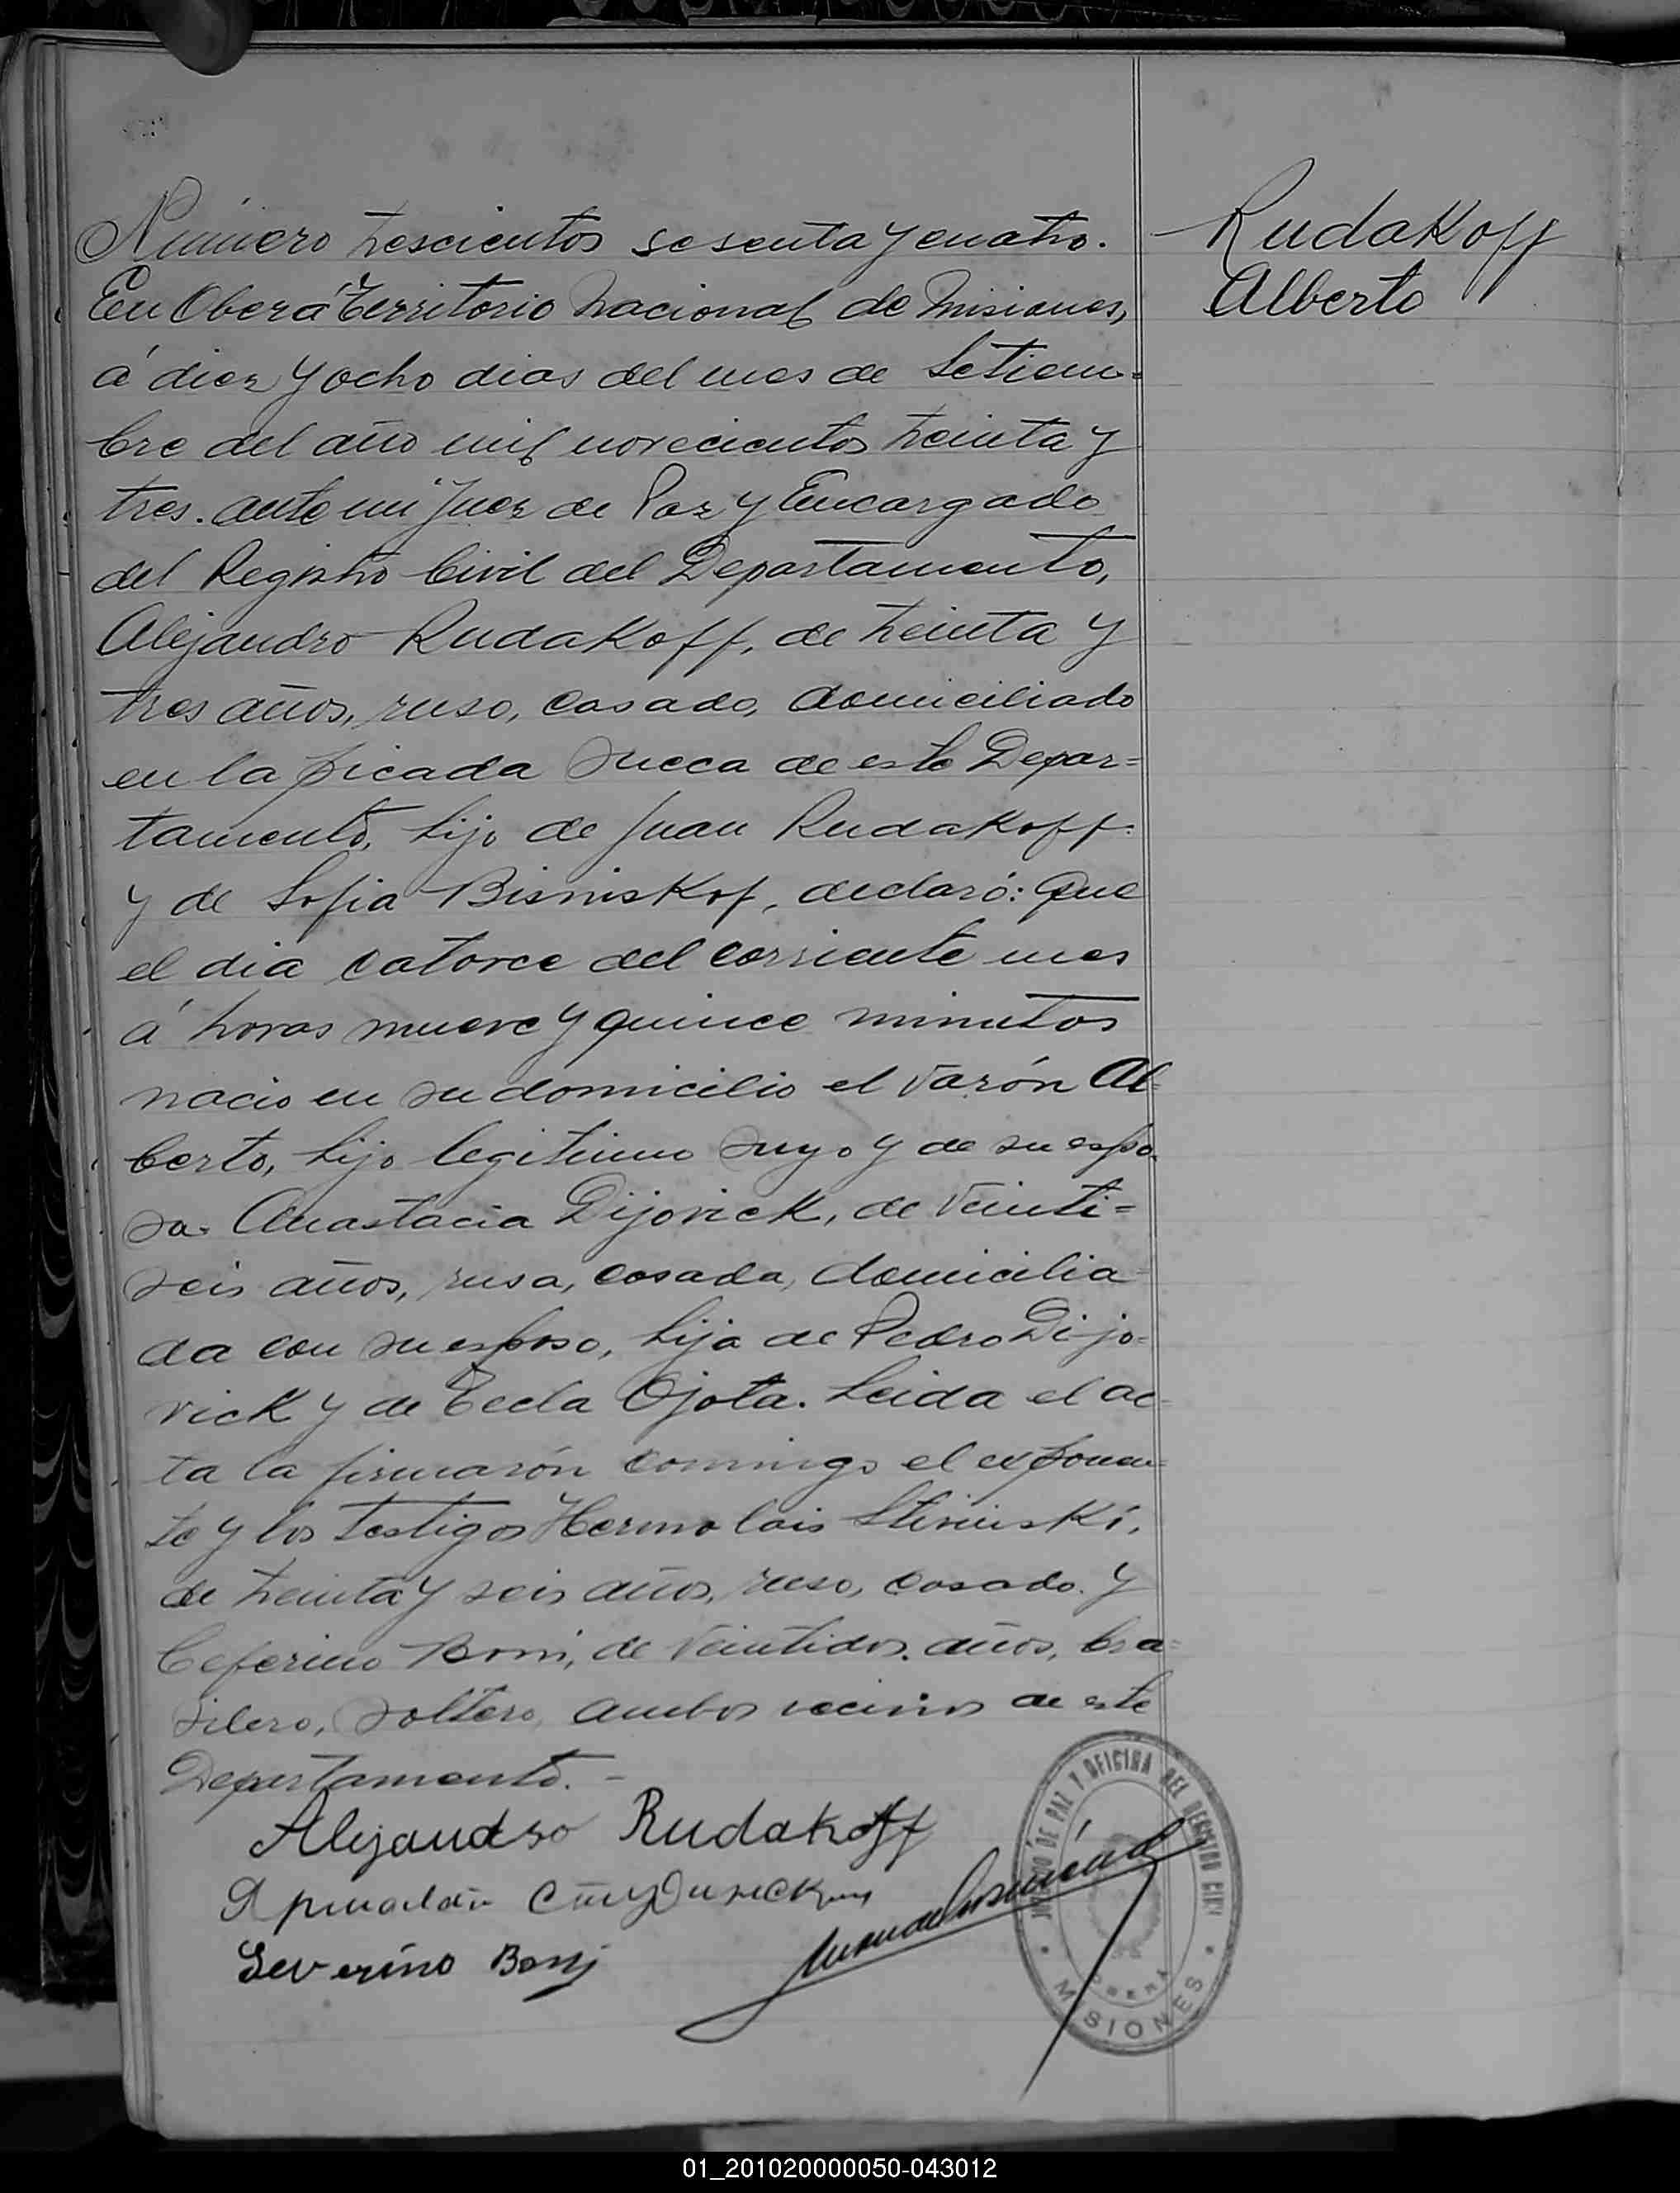 Número trescientos sesenta y cuatro.
En Oberá Territorio Nacional de Misiones,
á diez y ocho dias del mes de Setiem=
bre del año mil novecientos treinta y
tres. ante mi Juez de Paz y Encargado
del Registro Civil del Departamento,
Alejandro Rudakoff, de treinta y
tres años, ruso, casado, domiciliado
en la picada Sueca de este Depar=
tamento, hijo de Juan Rudakoff
y de Sofia Bisniskof, declaró: Que
el dia catorce del corriente mes
á horas nueve y quince minutos
nacio en su domicilio el varón Al-
berto, hijo legitimo suyo y de su espo-
sa. Anastacia Dijovick, de veinti=
seis años, rusa, casada, domicilia-
da con su esposo, hija de Pedro Dijo=
vick y de Tecla Ojota. Leida el ac-
ta la firmarón conmigo el exponen=
te y los testigos Hermolais
de treinta y seis años, ruso, casado. y
Ceferino Boni, de veintidos. años, bra=
silero, soltero, ambos vecinos de este
Departamento. -
Rudakoff
Alberto
Alejandro Rudakoff
Severino
JUZGADO DE PAZ Y OFICINA DEL REGISTRO CIVIL
OBERÁ
MISIONES
01_201020000050-043012